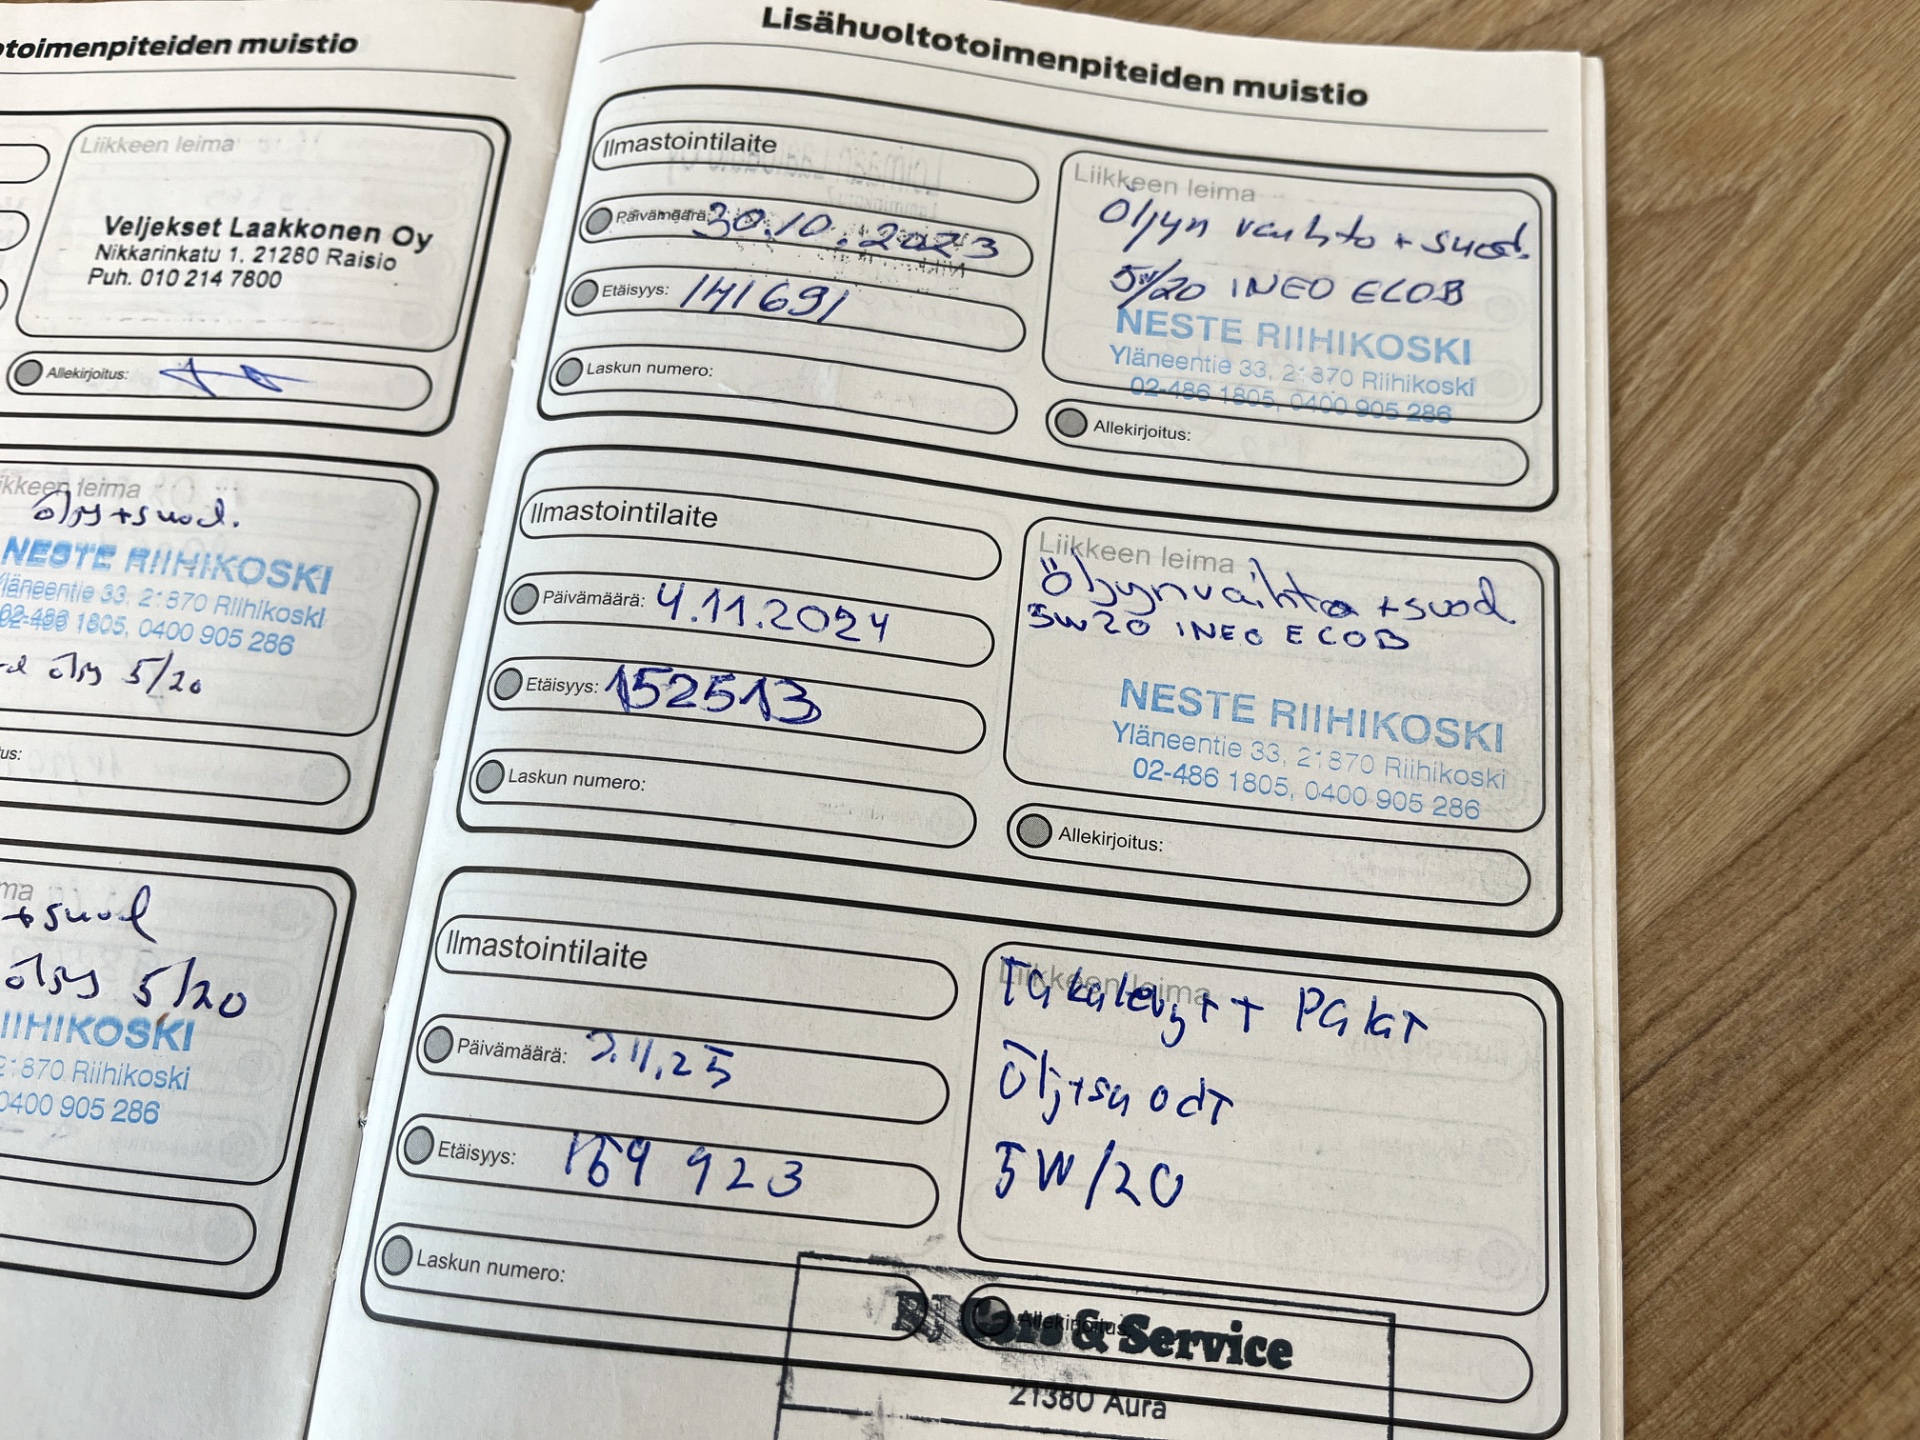 otoimenpiteiden muistio
Liikkeen leima
Veljekset Laakkonen Oy
Nikkarinkatu 1, 21280 Raisio
Puh. 010 214 7800
Allekirjoitus:
ikkeen leima
ölj+suod.
NESTE RIIHIKOSKI
Yläneentie 33, 21870 Riihikoski
02-486 1805, 0400 905 286
ölj 5/20
us:
ma
+suod
ölj 5/20
IIHIKOSKI
21870 Riihikoski
0400 905 286
Lisähuoltotoimenpiteiden muistio
Ilmastointilaite
Päivämäärä: 30.10.2023
Etäisyys: 141691
Laskun numero:
Liikkeen leima
Öljyn vaihto + suod.
5W/20 INEO ECOB
NESTE RIIHIKOSKI
Yläneentie 33, 21870 Riihikoski
02-486 1805, 0400 905 286
Allekirjoitus:
Ilmastointilaite
Päivämäärä: 4.11.2024
Etäisyys: 152513
Laskun numero:
Liikkeen leima
Öljynvaihto +suod
5W20 INEO ECOB
NESTE RIIHIKOSKI
Yläneentie 33, 21870 Riihikoski
02-486 1805, 0400 905 286
Allekirjoitus:
Ilmastointilaite
Päivämäärä: .11.25
Etäisyys: 159 923
Laskun numero:
Liikkeen leima
Takalevyt + Palat
Ölj+suodt
5W/20
Allekirjoitus:
BJ Cars & Service
21380 Aura